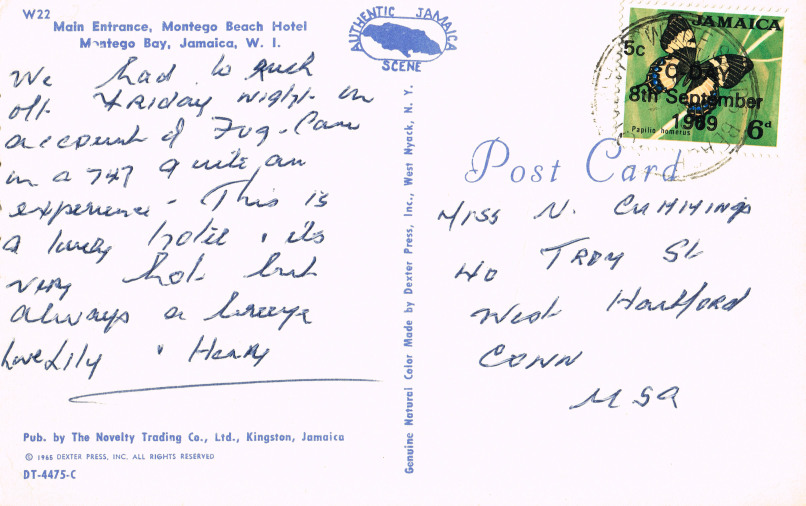 W22
Main Entrance, Montego Beach Hotel
Montego Bay, Jamaica, W. I.
AUTHENTIC JAMAICA
SCENE
We had to
off Friday night on
account of Fog. Came
in a 747 quite an
experience - This is
a lovely hotel & its
very hot but
always a breeze
Love Lily & Henry
Pub. by The Novelty Trading Co., Ltd., Kingston, Jamaica
© 1965 DEXTER PRESS, INC. ALL RIGHTS RESERVED
DT-4475-C
Genuine Natural Color Made by Dexter Press, Inc., West Nyack, N. Y.
JAMAICA
5c
C-DAY
8th September
1969
Papilio homerus
6d
Post Card
Miss N. Cummings
40 Troy St
West Hartford
Conn
USA